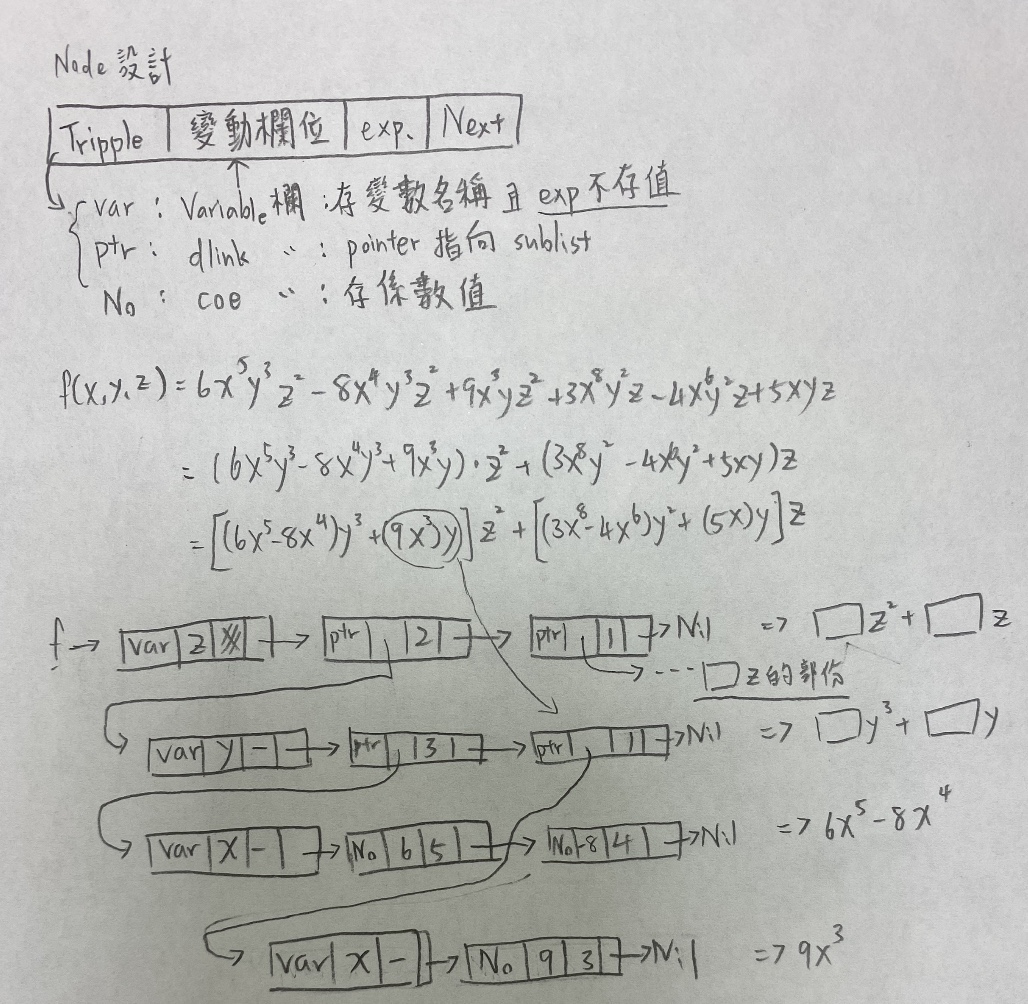 Node 設計
Tripple 變動欄位 exp. Next
var : Variable 欄 : 存變數名稱 且 exp 不存值
ptr : dlink 〃 : pointer 指向 sublist
No : coe 〃 : 存係數值
f(x,y,z) = 6x⁵y³z² - 8x⁴y³z² + 9x³yz² + 3x⁸y²z - 4x⁶y²z + 5xyz
= (6x⁵y³ - 8x⁴y³ + 9x³y)·z² + (3x⁸y² - 4x⁶y² + 5xy)z
= [(6x⁵ - 8x⁴)y³ + (9x³)y] z² + [(3x⁸ - 4x⁶)y² + (5x)y] z
f → var z → ptr 2 → ptr 1 → Nil => □z² + □z
→ --- □z的部份
var y - → ptr 3 → ptr 1 → Nil => □y³ + □y
var x - → No 6 5 → No -8 4 → Nil => 6x⁵ - 8x⁴
var x - → No 9 3 → Nil => 9x³